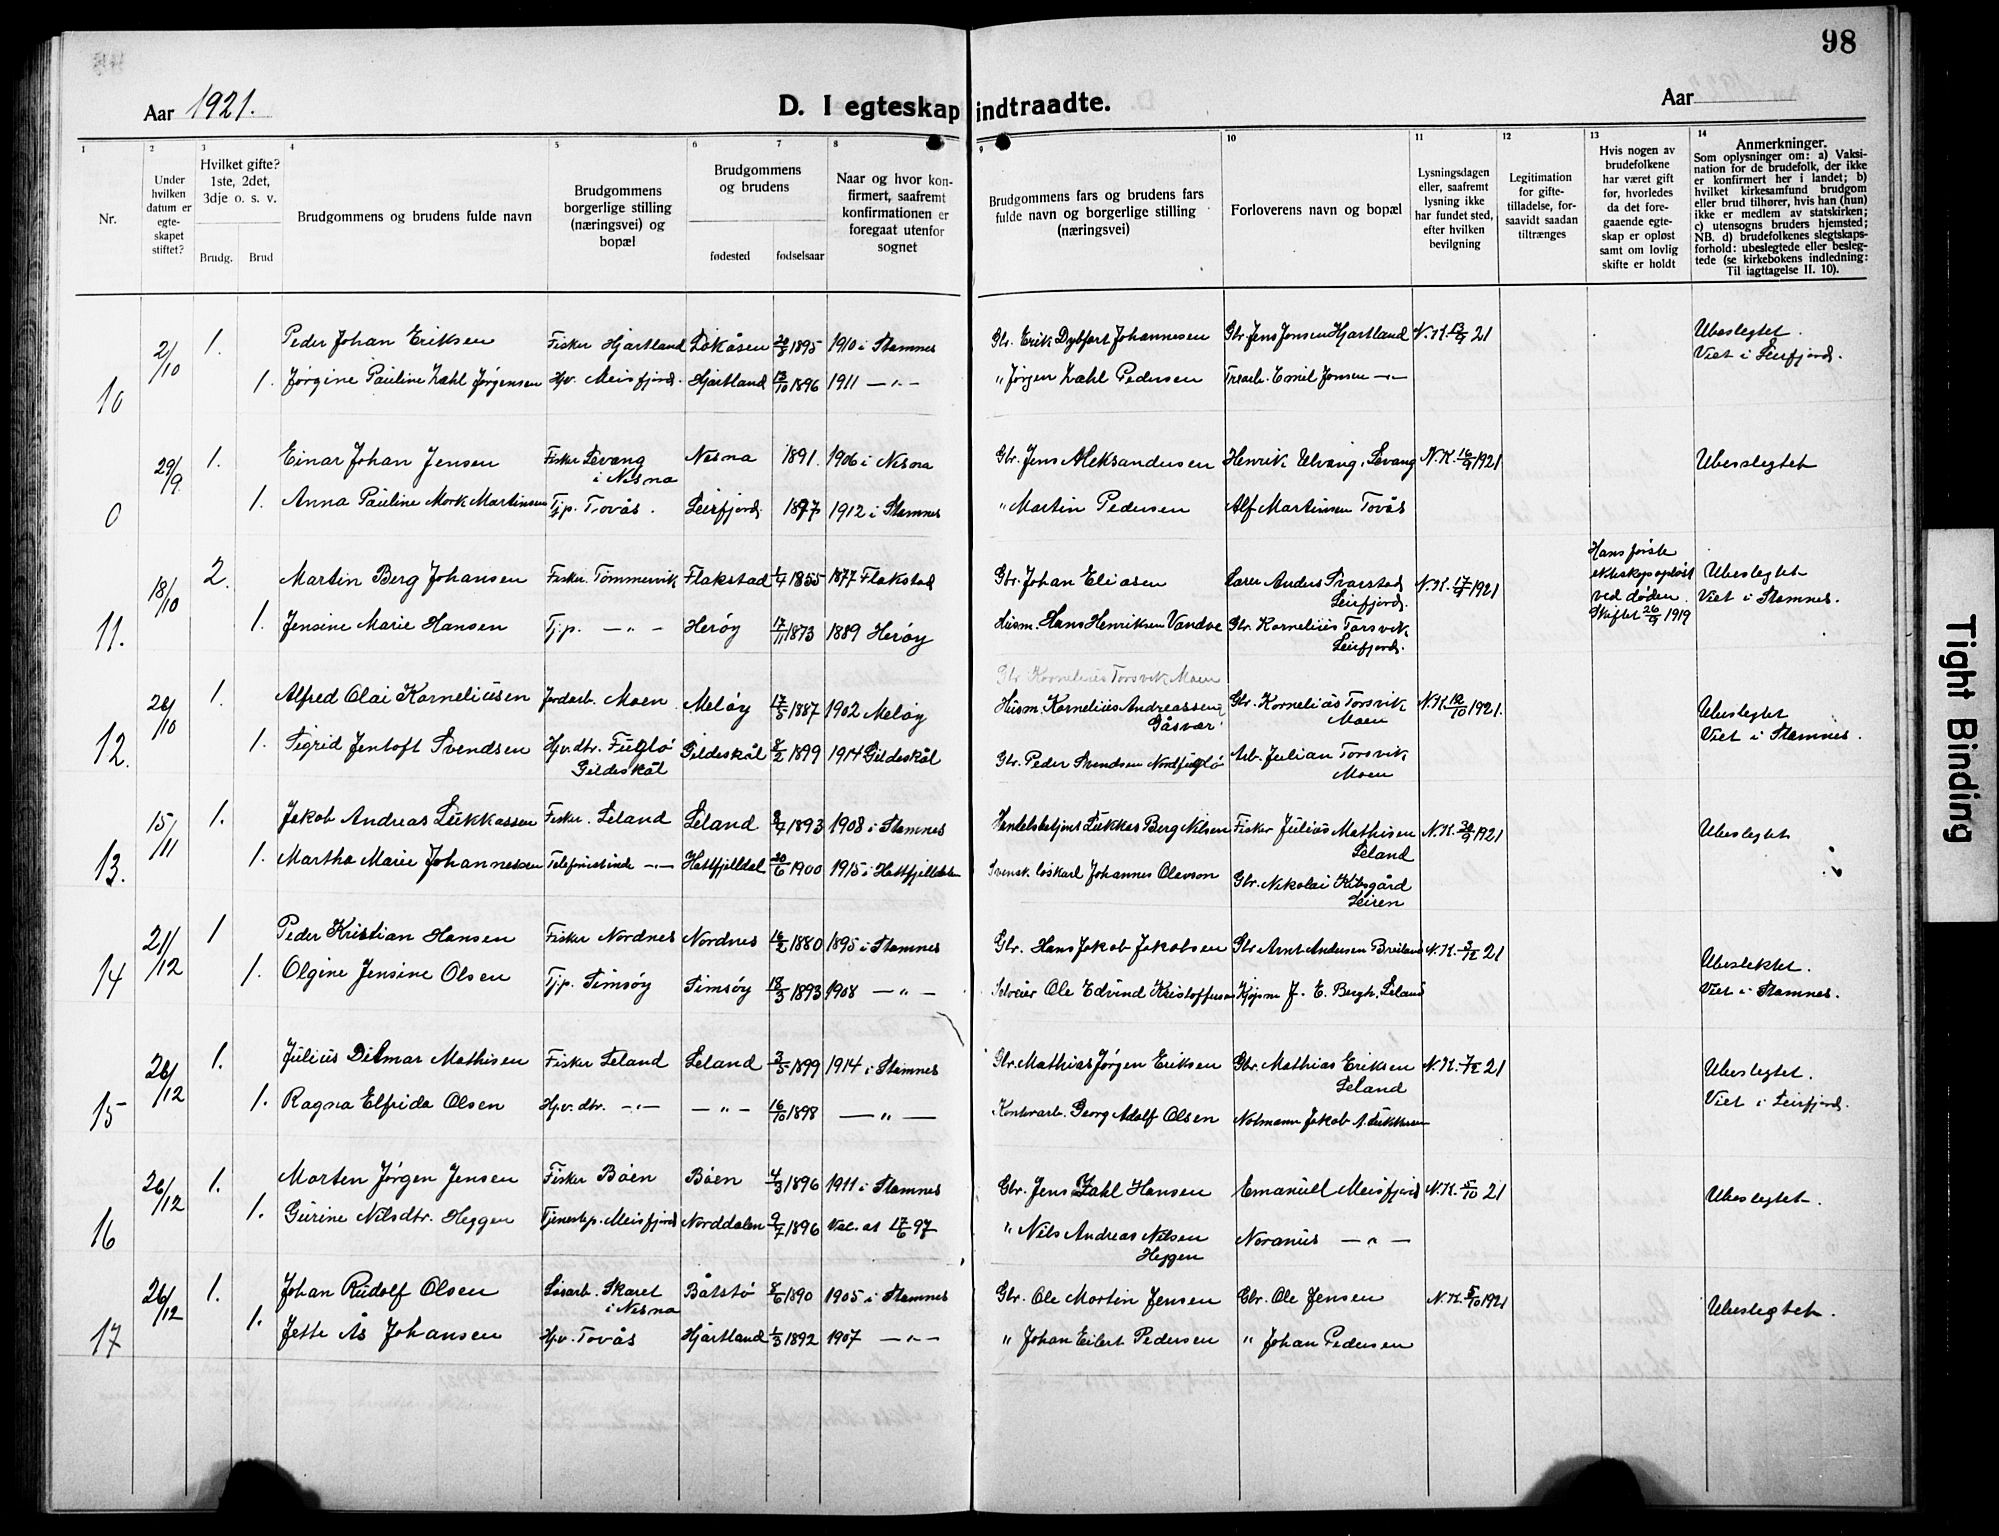 98
Aar 1921.
D. I egteskap indtraadte.
Aar
1
2
3
4
5
6
7
8
9
10
11
12
13
14
Nr.
Under hvilken datum er egte-skapet stiftet?
Hvilket gifte? 1ste, 2det, 3dje o. s. v.
Brudg.
Brud
Brudgommens og brudens fulde navn
Brudgommens borgerlige stilling (næringsvei) og bopæl
Brudgommens og brudens
fødested
fødselsaar
Naar og hvor kon-firmert, saafremt konfirmationen er foregaat utenfor sognet
Brudgommens fars og brudens fars fulde navn og borgerlige stilling (næringsvei)
Forloverens navn og bopæl
Lysningsdagen eller, saafremt lysning ikke har fundet sted, efter hvilken bevilgning
Legitimation for gifte-tilladelse, for-saavidt saadan tiltrænges
Hvis nogen av brudefolkene har været gift før, hvorledes da det fore-gaaende egte-skap er opløst samt om lovlig skifte er holdt
Anmerkninger.
Som oplysninger om: a) Vaksi-nation for de brudefolk, der ikke er konfirmert her i landet; b) hvilket kirkesamfund brudgom eller brud tilhører, hvis han (hun) ikke er medlem av statskirken; c) utensogns bruders hjemsted; NB. d) brudefolkenes slegtskaps-forhold: ubeslegtede eller besleg-tede (se kirkebokens indledning: Til iagttagelse II. 10).
10 2/10 1. Peder Johan Eriksen Fisker Hjartland Dokåsen 20/8 1895 1910 i Stamnes Gbr. Erik Dybfert Johannesen Gbr. Jens Jonsen Hjartland N.K. 13/9 21 Ubeslegtet.
Viet i Leirfjord.
1. Jørgine Pauline Zahl Jørgensen Hjv. Meisfjord. Hjartland 13/10 1896 1911 —"— " Jørgen Zahl Pedersen Trearb. Emil Jonsen —"—
0 29/9. 1. Einar Johan Jensen Fisker Levang i Nesna Nesna 1891. 1906 i Nesna Gbr. Jens Aleksandersen Henrik Ulvang, Levang N.K. 16/9 1921 Ubeslegtet
1. Anna Pauline Mork Martinsen Tjp. Tovås. Leirfjord. 1897 1912 i Stamnes " Martin Pedersen Alf Martinsen Tovås
11. 18/10 2. Martin Berg Johansen Fisker. Tømmervik Flakstad 1/4 1855 1877 Flakstad Gbr. Johan Eliasen Lærer Anders Svarstad Leirfjord. N.K. 17/9 1921 Hans første ekteskap opløst ved døden. Skiftet 26/9 1919 Ubeslegtet
Viet i Stamnes.
1. Jensine Marie Hansen Tjp. —"— Herøy 17/11 1873 1889 Herøy Husm. Hans Henriksen Vandve Gbr. Kornelius Torsvik Leirfjord.
Gbr Kornelius Torsvik Moen
12. 26/10 1. Alfred Olai Korneliusen Jordarb. Moen Meløy 17/5 1887 1902 Meløy Husm. Kornelius Andreassen Gåsvær Gbr. Kornelius Torsvik Moen N.K. 12/10 1921. Ubeslegtet
Viet i Stamnes.
1. Sigrid Jentoft Svendsen Hjv. dtr. Fuglø Gildeskål Gildeskål 8/2 1899 1914 Gildeskål Gbr. Peder Svendsen Nordfuglø Arb. Julian Torsvik Moen
13. 15/11 1. Jakob Andreas Lukkassen Fisker. Leland Leland 8/4 1893 1908 i Stamnes Handelsbetjent Lukkas Berg Nilsen Fisker Julius Mathisen Leland N.K. 30/9 1921 Ubeslegtet
1. Martha Marie Johannessen Telefonistinde —"— Hatfjelldal 20/6 1900 1915 i Hatfjelldalen Svensk løskarl Johannes Olevson Gbr. Nikolai Kibsgård Leiren
14 21/12 1 Peder Kristian Hansen Fisker Nordnes Nordnes 16/2 1880 1895 i Stamnes Gbr. Hans Jakob Jakobsen Gbr Arnt Andersen Breiland N.K. 21 Ubeslektet.
Viet i Stamnes.
1. Olgine Jensine Olsen Tjp. Simsøy Simsøy 18/3 1893 1908 —"— Selveier Ole Edvind Kristoffersen Kjøpm J. E. Bergh, Leland
15 26/12 1. Julius Ditmar Mathisen Fisker Leland Leland 3/5 1899 1914 i Stamnes Gbr. Mathias Jørgen Eriksen Gbr. Mathias Eriksen Leland N.K. 21 Ubeslegtet.
Viet i Leirfjord.
1. Ragna Elfrida Olsen Hjv. dtr. —"— —"— 16/10 1898 —"— Kontorarb. Georg Adolf Olsen Notmann Jakob A. Lukkassen
16 26/12 1. Morten Jørgen Jensen Fisker Bøen Bøen 4/3 1896 1911 i Stamnes Gbr. Jens Zahl Hansen Emanuel Meisfjord N.K. 5/10 21 Ubeslegtet.
1. Gurine Nilsdtr. Heggen Tjenestep. Meisfjord Norddalen 9/7 1896 Vac. at 17/6 97 " Nils Andreas Nilsen Heggen Noranus —"—
17 26/12 1. Johan Rudolf Olsen Løsarb. Skaret i Nesna Båtstø 8/6 1890 1905 i Stamnes Gbr. Ole Mortin Jensen Gbr. Ole Jensen N.K. 5/10 1921 Ubeslegtet.
1. Jette Ås Johansen Hjv. Tovås Hjartland 1/3 1892 1907 —"— " Johan Eilert Pedersen " Johan Pedersen
Tight Binding